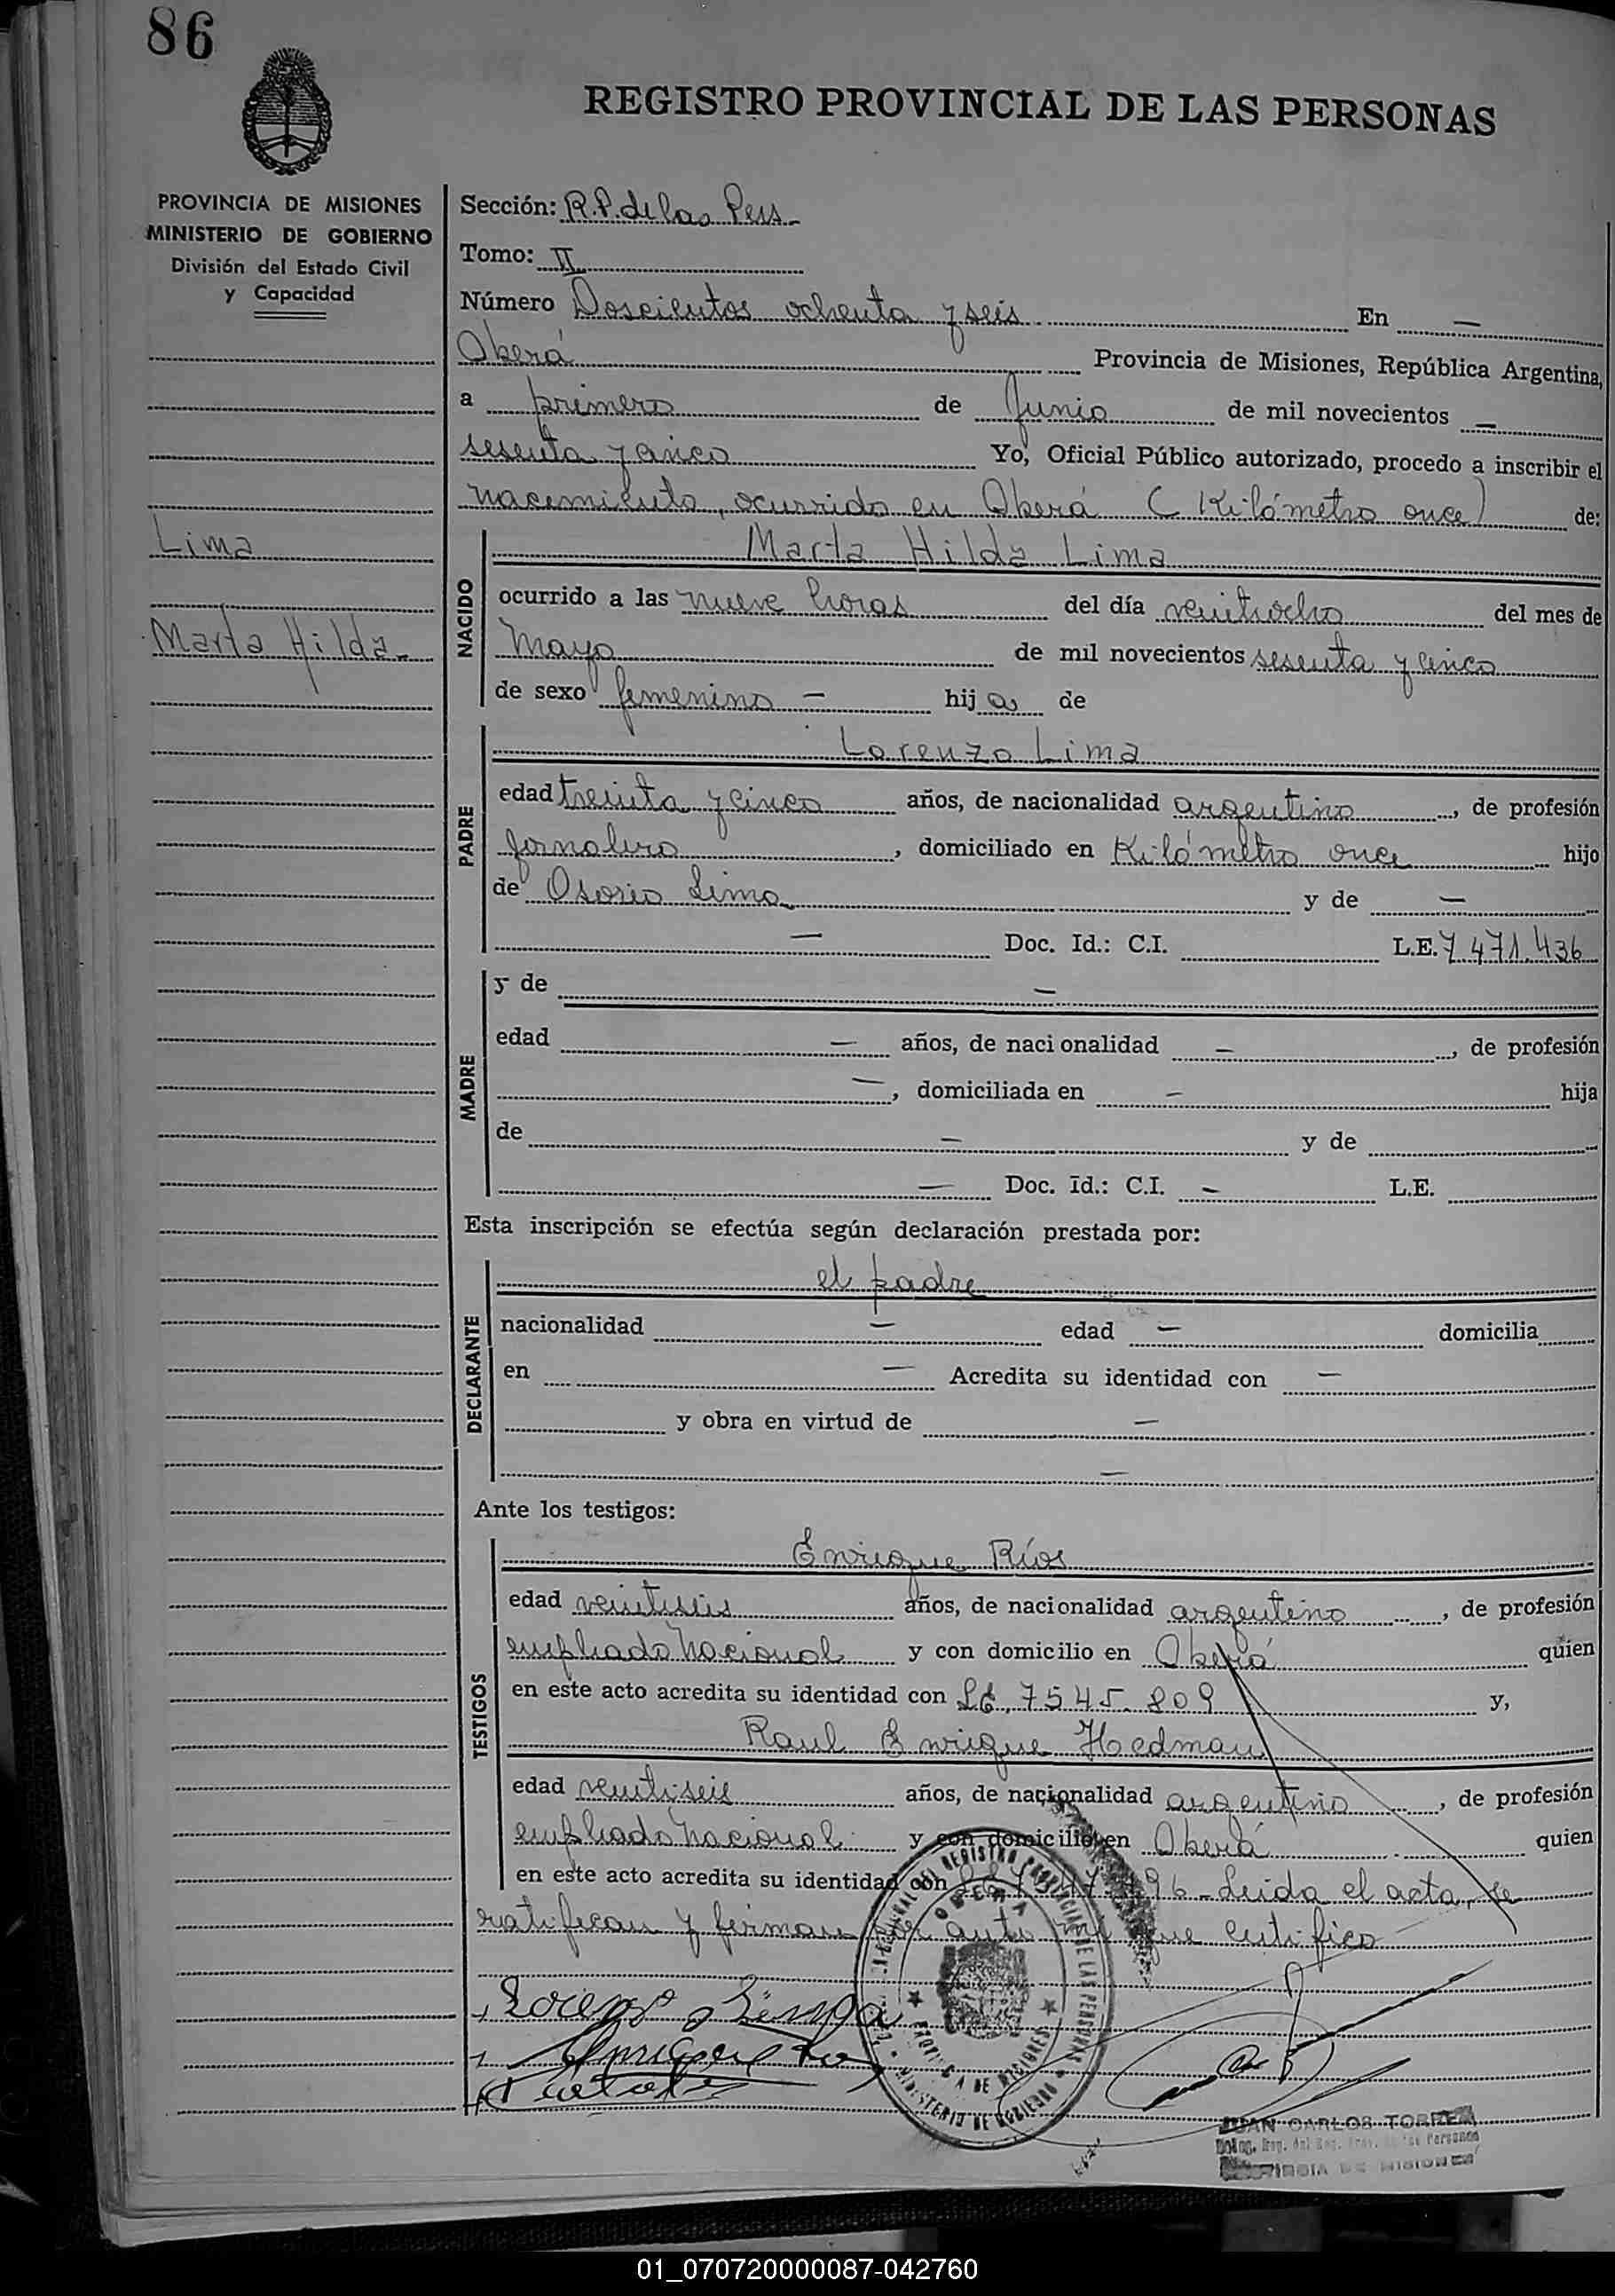 86
REGISTRO PROVINCIAL DE LAS PERSONAS
PROVINCIA DE MISIONES
MINISTERIO DE GOBIERNO
División del Estado Civil
y Capacidad
Lima
Marta Hilda
Sección: R.P. de las Pers
Tomo: II
Número Doscientos ochenta y seis En —
Oberá Provincia de Misiones, República Argentina,
a primero de Junio de mil novecientos —
sesenta y cinco Yo, Oficial Público autorizado, procedo a inscribir el
nacimiento, ocurrido en Oberá (Kilómetro once) de:
NACIDO
Marta Hilda Lima
ocurrido a las nueve horas del día veintiocho del mes de
Mayo de mil novecientos sesenta y cinco
de sexo femenino — hija de
PADRE
Lorenzo Lima
edad treinta y cinco años, de nacionalidad argentino, de profesión
jornalero, domiciliado en Kilómetro once hijo
de Osorio Lima y de —
— Doc. Id.: C.I. L.E. 7.471.436
MADRE
y de —
edad — años, de nacionalidad —, de profesión
—, domiciliada en — hija
de — y de
— Doc. Id.: C.I. — L.E.
Esta inscripción se efectúa según declaración prestada por:
DECLARANTE
el padre
nacionalidad — edad — domicilia
en — Acredita su identidad con —
y obra en virtud de —
—
Ante los testigos:
TESTIGOS
Enrique Ríos
edad veintiseis años, de nacionalidad argentino, de profesión
empleado Nacional y con domicilio en Oberá quien
en este acto acredita su identidad con L.E. 7545.809 y,
Raul Enrique Hedman
edad veintiseis años, de nacionalidad argentino, de profesión
empleado Nacional y con domicilio en Oberá quien
en este acto acredita su identidad con 96 - Leida el acta, se
ratifican y firman por ante mi que certifico
Lorenzo Lima
Enrique
OBERA
PROVINCIA DE MISIONES
MINISTERIO DE GOBIERNO
JUAN CARLOS TORRES
PROVINCIA DE MISIONES
01_070720000087-042760